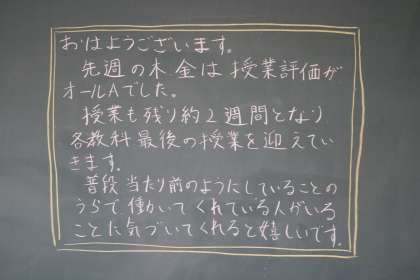 おはようございます。
先週の木金は授業評価が
オールAでした。
授業も残り約2週間となり
各教科最後の授業を迎えてい
きます。
普段当たり前のようにしていることの
うらで働かいてくれている人がいる
ことに気づいてくれると嬉しいです。